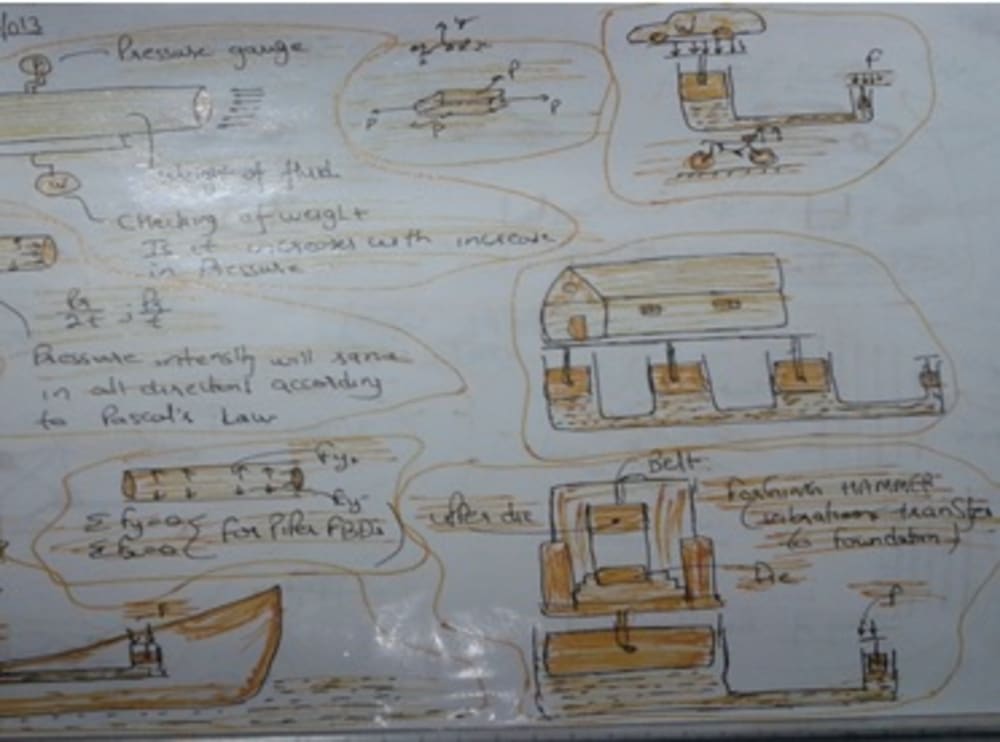 /013
P
Pressure gauge
Weight of fluid
W
Checking of weight
Is it increases with increase
in Pressure
Pressure intensity will same
in all directions according
to Pascal's Law
Y
x
P
P
P
P
W
F
Fy+
Fy-
Σ Fy=0
for Pipe FBDs
F
Belt
Upper die
HAMMER
(vibrations transfer
to foundation)
Die
f